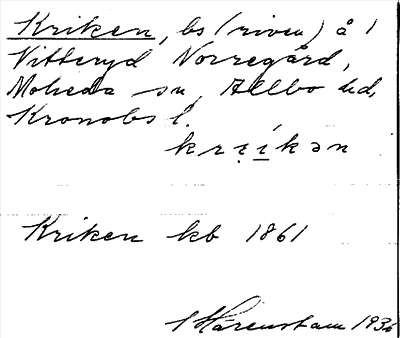 Kriken, bs (riven) å 1
Vitteryd Norregård,
Moheda sn, Allbo hd,
Kronobs l.
krịíkən
Kriken kb 1861
Härenstam 1936